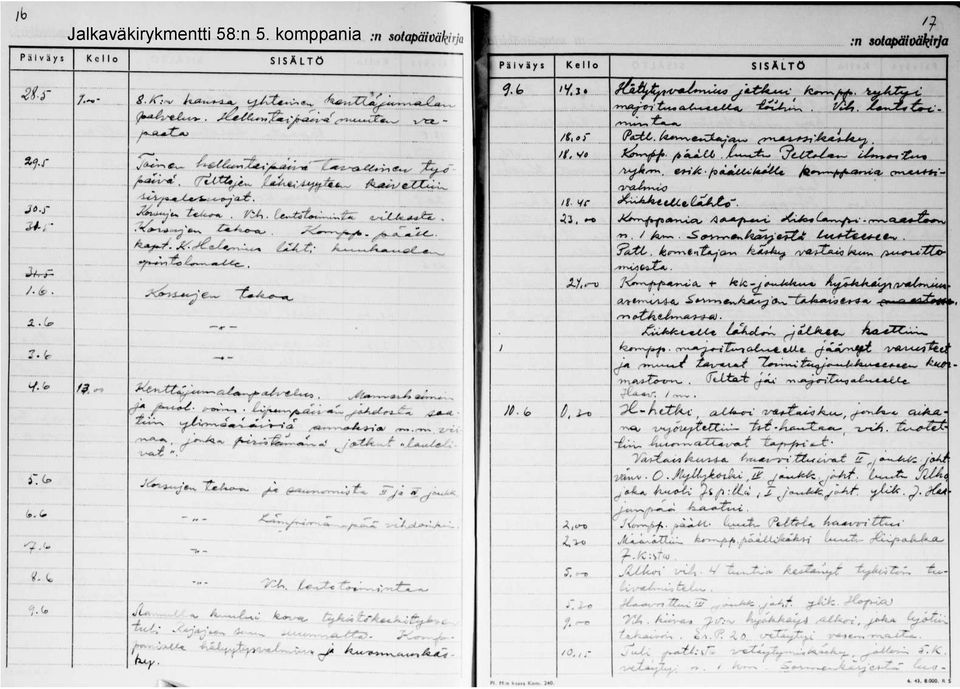 16
Jalkaväkirykmentti 58:n 5. komppania :n sotapäiväkirja
Päiväys Kello SISÄLTÖ
28.5 7.00 8.K:n kanssa yhteinen kenttäjumalan
palvelus. Helluntaipäivä muuten va-
paata
29.5 Toinen helluntaipäivä tavallinen työ
päivä. Telttojen läheisyyteen kaivettiin
sirpalesuojat.
30.5 Korsujen tekoa. Vih. lentotoiminta vilkasta.
31.5 Korsujen tekoa. Kompp. pääll.
kapt. K. Helenius lähti kuukauden
opintolomalle.
31.5
1.6. Korsujen tekoa
2.6 -"-
3.6 -"-
4.6 13.00 Kenttäjumalanpalvelus. Mannerheimin
ja puol. voim. lipunpäivän johdosta saa
tiin ylimääräisiä annoksia m.m. vii
naa, jonka piristämänä jotkut "lauleli
vat".
5.6 Korsujen tekoa ja saunomista II ja joukk
6.6 -"- Lämpimänpää
7.6 -"-
8.6 -"- Vih. lentotoimintaa
9.6 Aamulla kuului kova tykistökeskitykse
tuli Rajajoen suun suunnalta. Komp-
panialle hälyytysvalmius ja kuormauskäs-
ky.
17
:n sotapäiväkirja
Päiväys Kello SISÄLTÖ
9.6 14,30 Hälytysvalmius jatkui kompp. ryhtyi
majoitusalueella töihin. Vih. lentotoi-
mintaa
18,05 Patl. komentajan marssikäsky.
18,40 Kompp. pääll. luutn Peltolan ilmoitus
rykm. esik. päällikölle komppania marssi-
valmis
18.45 Liikkeellelähtö.
23,00 Komppania saapui maastoon
n. 1 km. Sormenkärjestä luoteeseen.
Patl. komentajan käsky vastaiskun suoritta
misesta.
24,00 Komppania + kk-joukkue hyökkäysvalmius
asemissa Sormenkärjen takaisessa
notkelmassa.
Liikkeelle lähdön jälkeen haettiin
kompp. majoitusalueelle jääneet varusteet
ja muut tavarat toimitusjoukkueeseen kuor-
mastoon. Teltat jäi majoitusalueelle
Haav. 1 mies.
10.6 0,20 H-hetki, alkoi vastaisku, jonka aika-
na vyörytettiin tst-hautaa, vih. tuotet-
tiin huomattavat tappiot.
Vastaiskussa haavoittuivat II joukk. joht.
vänr. O. Myllykoski, IV joukk. joht. luutn
joka kuoli JSp:llä, I joukk. joht. ylik. J. Haa
janpää kaatui.
2,00 Kompp. pääll. luutn Peltola haavoittui
2,20 Määrättiin kompp. päälliköksi luutn Hiipakka
7.K:sta.
5,00 Alkoi vih. 4 tuntia kestänyt tykistön tu-
livalmistelu.
5,20 Haavoittui IV joukk. joht. ylik. Hopia
9,00 Vih. kiivas jv:n hyökkäys alkoi, joka lyötiin
takaisin. Er.P.20 vetäytyi vasemmalta.
10,15 Tuli patl:sta vetäytymiskäsky, jolloin 5.K.
vetäytyi n. 1 km. Sormenkärjestä luo-
Pl. M:n kaava Kom. 240.
6. 43. 8.000.